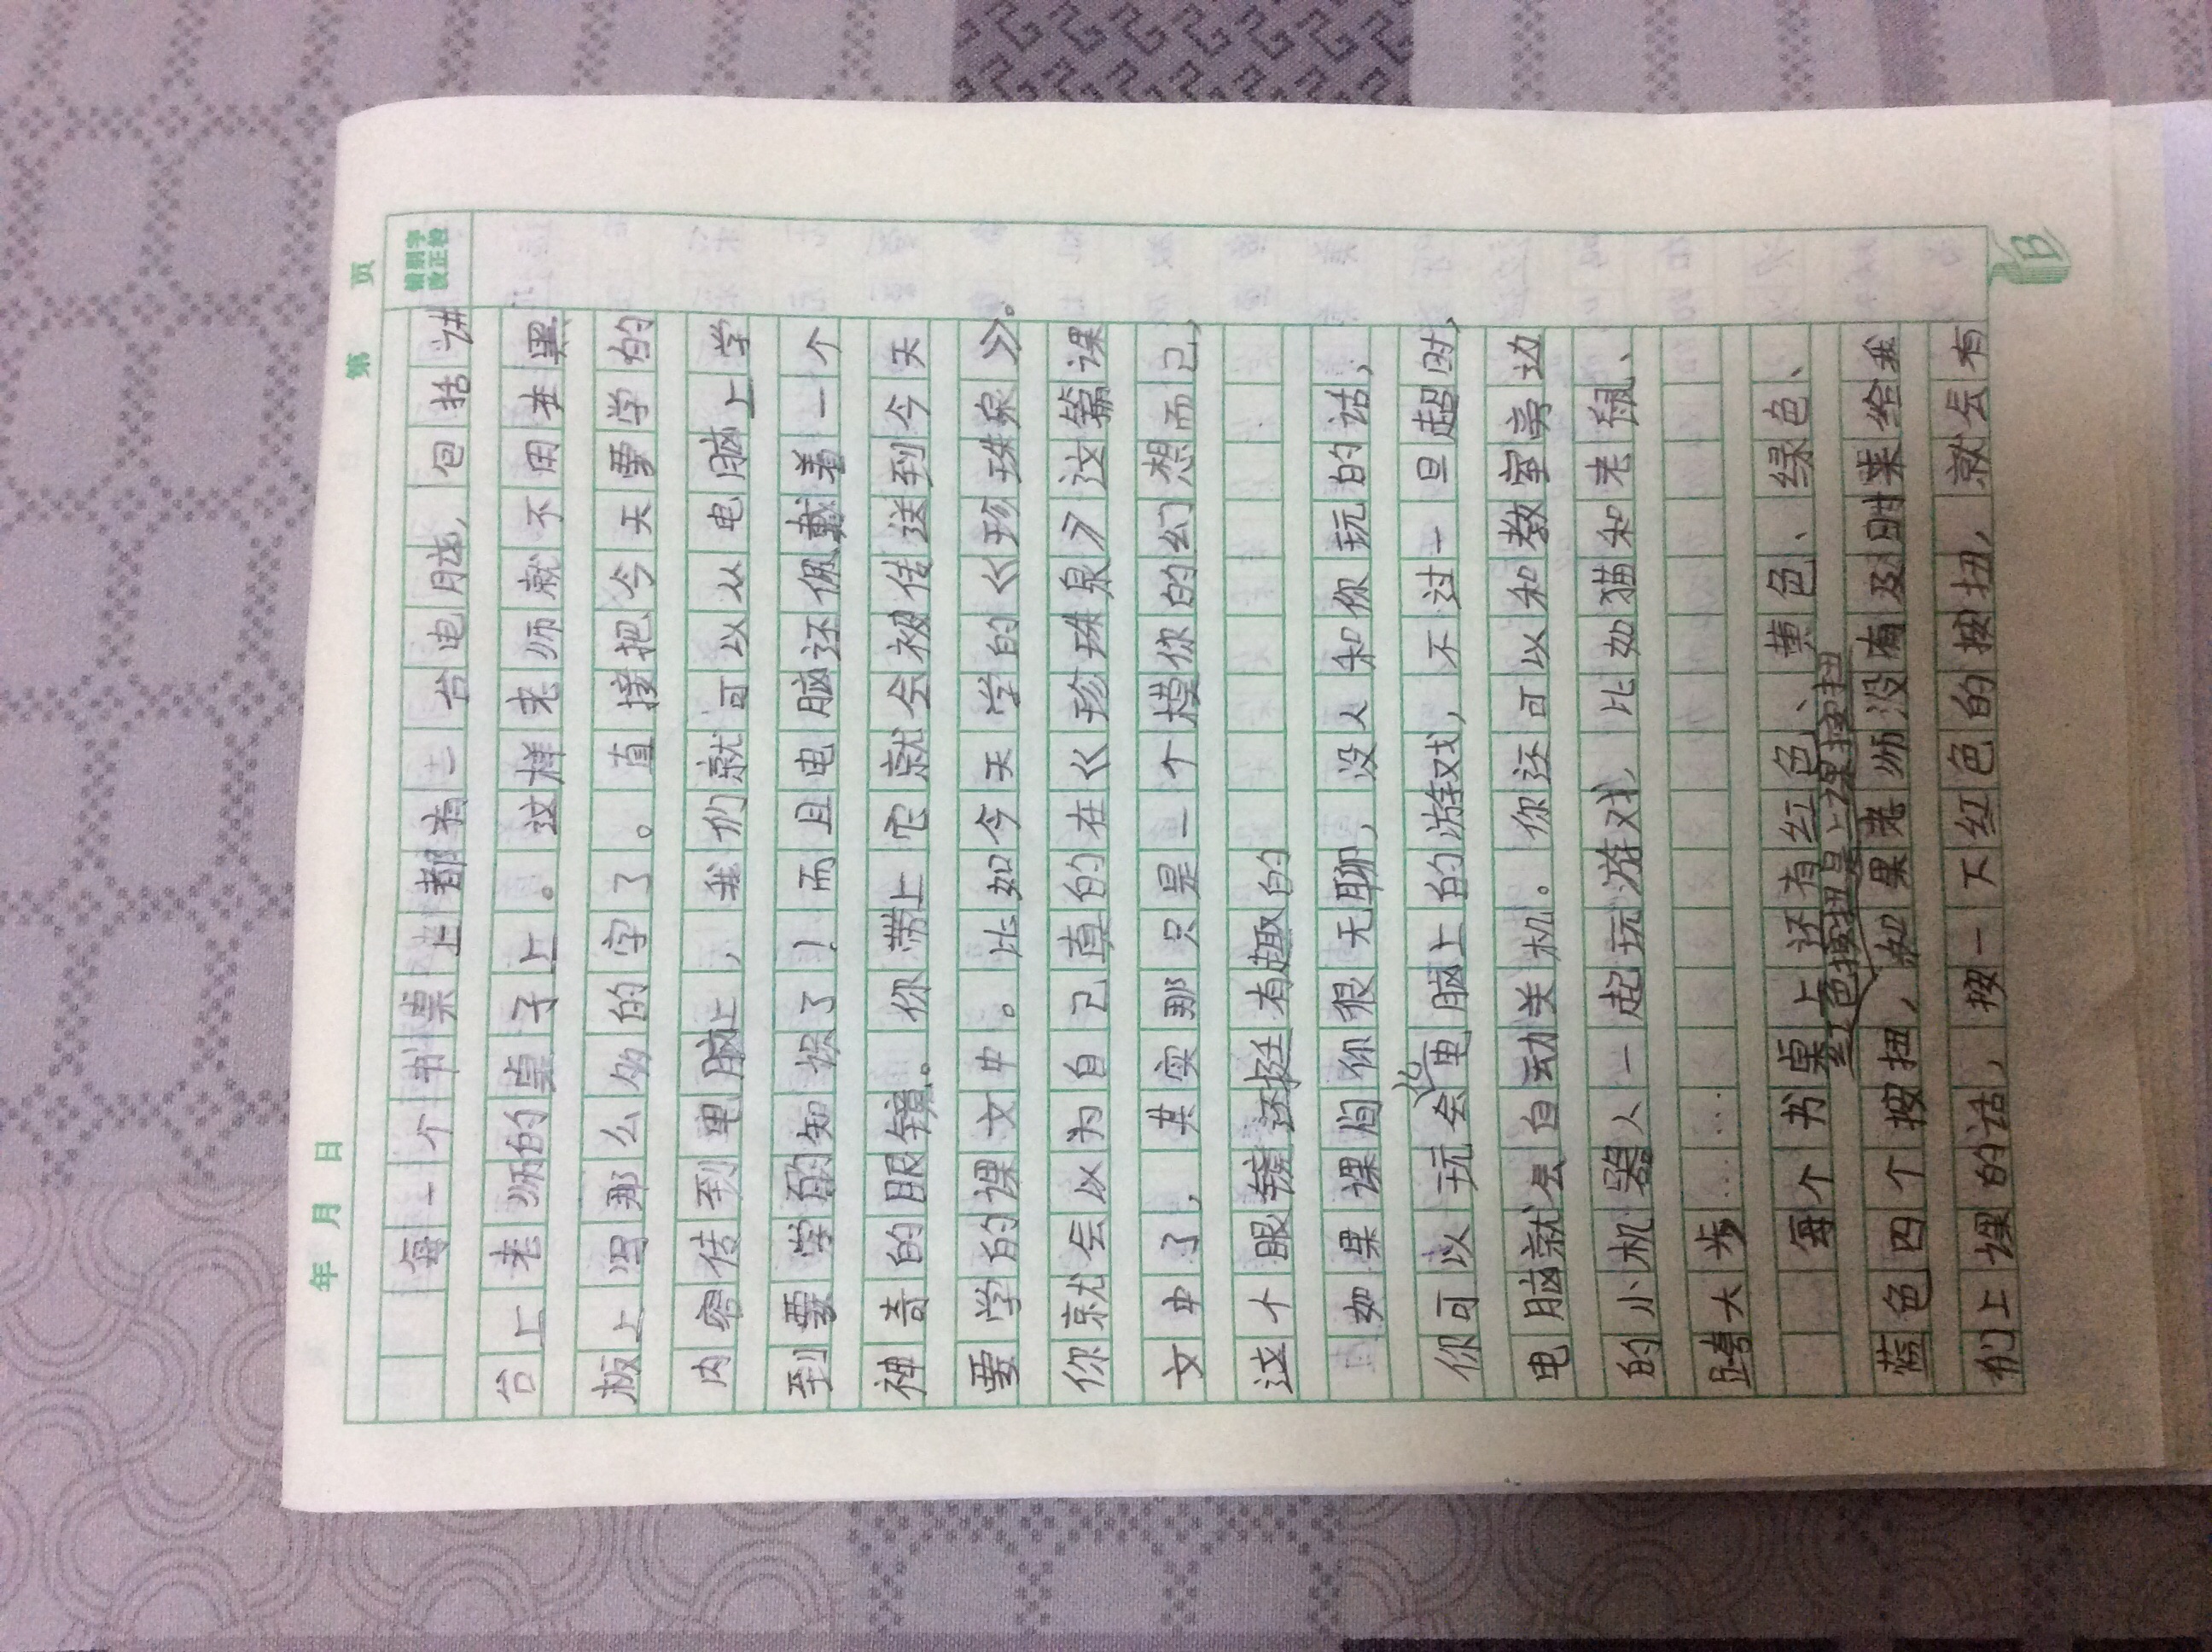 年 月 日 第 页
错别字
改正栏
每一个书桌上都有一台电脑，包括讲
台上老师的桌子上。这样老师就不用在黑
板上写那么多的字了。直接把今天要学的
内容传到电脑上，我们就可以从电脑上学
到要学的知识了！而且电脑还佩戴着一个
神奇的眼镜。你带上它就会被传送到今天
要学的课文中。比如今天学的《珍珠泉》。
你就会以为自己真的在《珍珠泉》这篇课
文中了，其实那只是一个模你的幻想而已，
这个眼镜还挺有趣的
如果课间你很无聊，没人和你玩的话，
你可以玩会儿电脑上的游戏，不过一旦超时，
电脑就会自动关机。你还可以和教室旁边
的小机器人一起玩游戏，比如猫和老鼠、
跨大步……
每个书桌上还有红色、黄色、绿色、
红色按扭是上课按扭
蓝色四个按扭，如果老师没有及时来给我
们上课的话，按一下红色的按扭，就会有
B